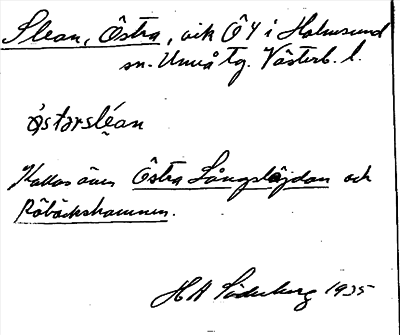 Slean, Östra, vik ÖY i Holmsund
sn. Umeå tg. Västerb. l.
östərsléan
Kallas även Östra Långslöjdan och
Röbäckshamnen.
HA Söderberg 1935